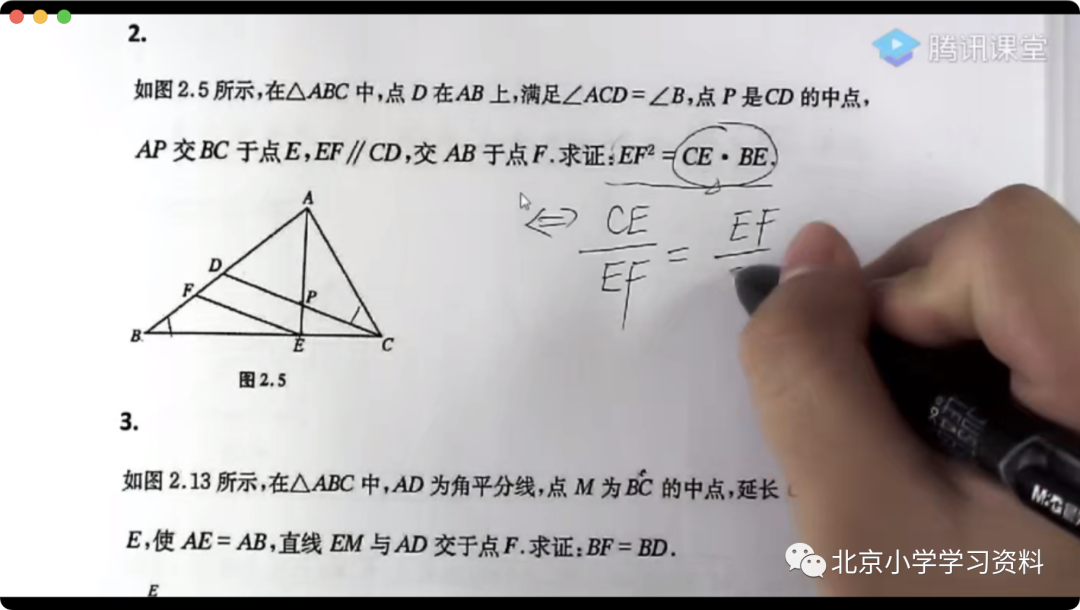 2.
腾讯课堂
如图2.5所示,在△ABC中,点D在AB上,满足∠ACD=∠B,点P是CD的中点,
AP交BC于点E,EF∥CD,交AB于点F.求证:EF²=CE·BE.
⇔ CE/EF = EF
A
D
F
P
B
E
C
图2.5
3.
如图2.13所示,在△ABC中,AD为角平分线,点M为BC的中点,延长
E,使AE=AB,直线EM与AD交于点F.求证:BF=BD.
E
M&G
北京小学学习资料